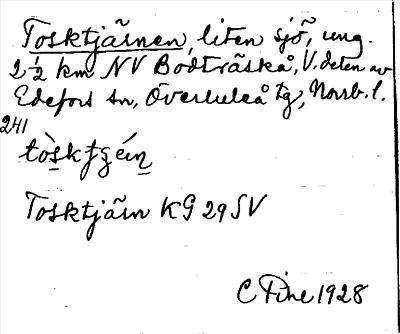 Tosktjärnen, liten sjö, ung.
2½ km NV Bodträskå, V. delen av
Edefors sn, Överluleå tg, Norrb. l.
241
Tosktjärn KG 29 SV
1928